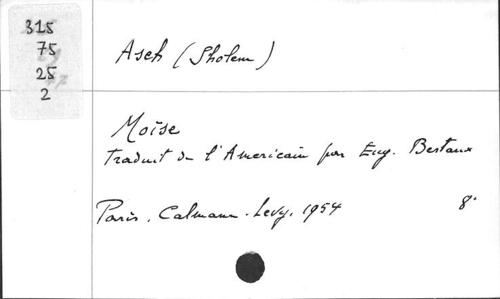 315
75
25
2
Asch (Sholem)
Moïse
Traduit de l'Americain par Eug. Bestaux
Paris. Calmann-Levy. 1954 8°